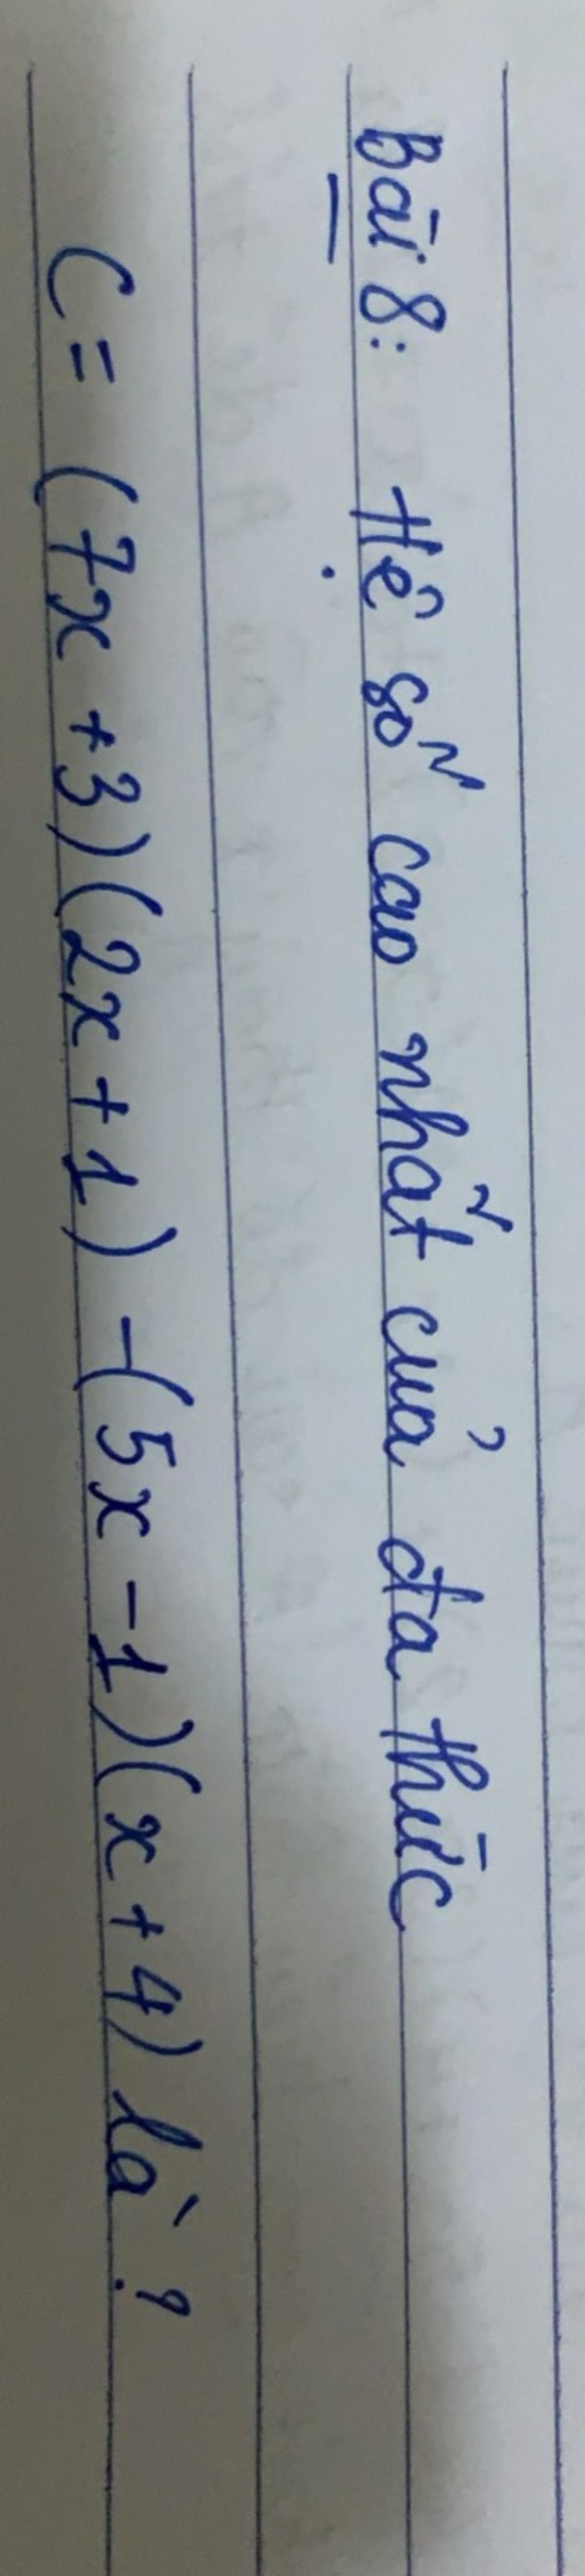 Bài 8: Hệ số cao nhất của đa thức
C = (7x + 3)(2x + 1) - (5x - 1)(x + 4) là ?